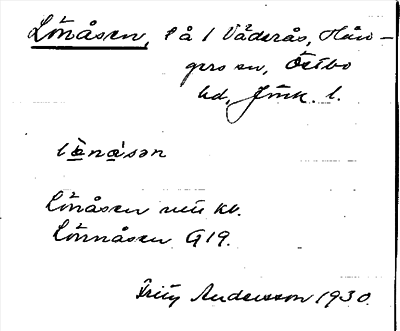 Lönåsen, l å 1 Väderås, Hån-
gers sn, Östbo
hd, Jönk. l.
lö̀nåsən
Lönåsen mtl kb.
Lönnåsen G19.
Fritz Andersson 1930.